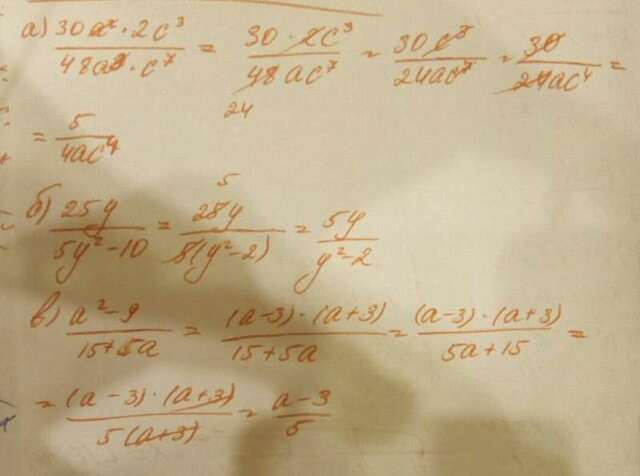 а) 30a²·2c³/48a³·c⁷ = 30·2c³/48ac⁷ = 30c³/24ac⁷ = 30/24ac⁴ =
24
= 5/4ac⁴
5
б) 25y/5y²-10 = 25y/5(y²-2) = 5y/y²-2
в) a²-9/15+5a = (a-3)·(a+3)/15+5a = (a-3)·(a+3)/5a+15 =
= (a-3)·(a+3)/5(a+3) = a-3/5